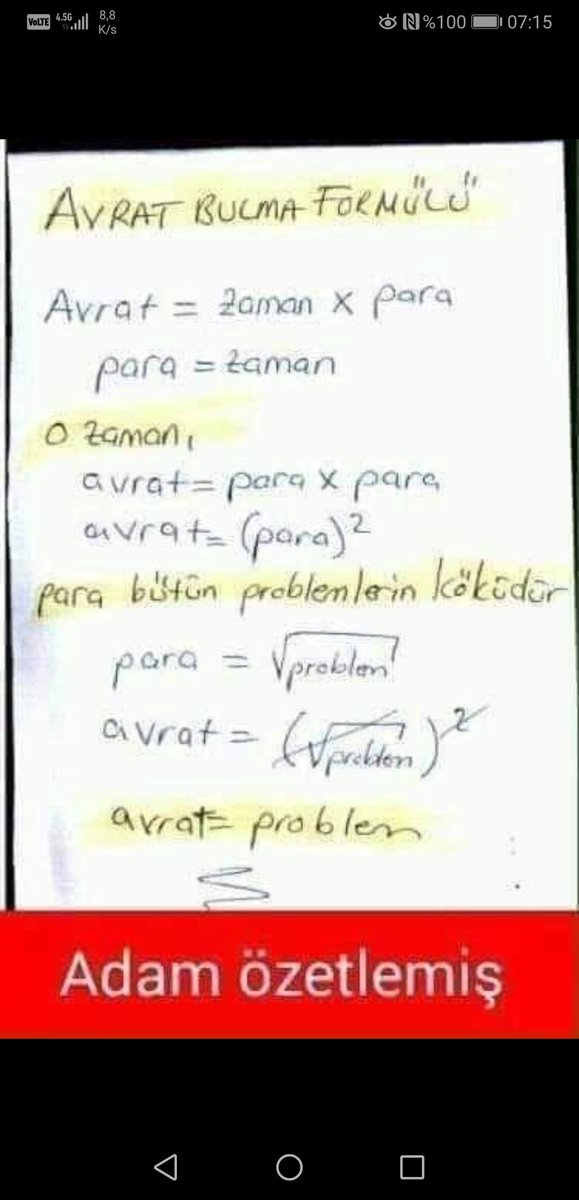 VoLTE 4.5G 8,8 K/s %100 07:15
AVRAT BULMA FORMÜLÜ
Avrat = zaman x para
para = zaman
O zaman,
avrat = para x para
avrat = (para)²
para bütün problemlerin köküdür
para = √problem
avrat = (√problem)²
avrat = problem
Adam özetlemiş